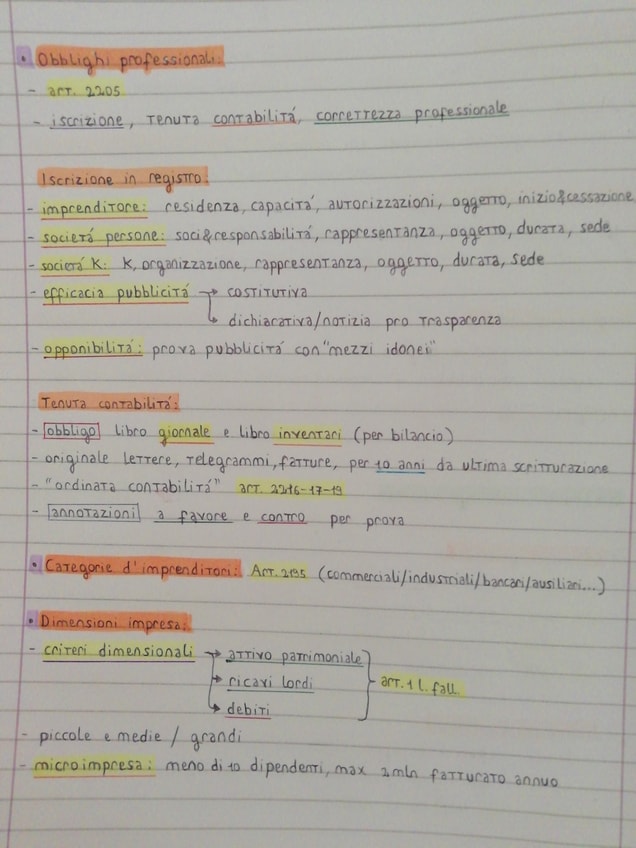 • Obblighi professionali:
- art. 2205
- iscrizione, tenuta contabilità, correttezza professionale
Iscrizione in registro:
- imprenditore: residenza, capacità, autorizzazioni, oggetto, inizio&cessazione
- società persone: soci&responsabilità, rappresentanza, oggetto, durata, sede
- società K: K, organizzazione, rappresentanza, oggetto, durata, sede
- efficacia pubblicità → costitutiva
→ dichiarativa/notizia pro trasparenza
- opponibilità: prova pubblicità con "mezzi idonei"
Tenuta contabilità:
- obbligo libro giornale e libro inventari (per bilancio)
- originale lettere, telegrammi, fatture, per 10 anni da ultima scritturazione
- "ordinata contabilità" art. 2216-17-19
- annotazioni a favore e contro per prova
• Categorie d'imprenditori: Art. 2195 (commerciali/industriali/bancari/ausiliari...)
• Dimensioni impresa:
- criteri dimensionali → attivo patrimoniale
→ ricavi lordi } art. 1 l. fall.
→ debiti
- piccole e medie / grandi
- microimpresa: meno di 10 dipendenti, max 2mln fatturato annuo